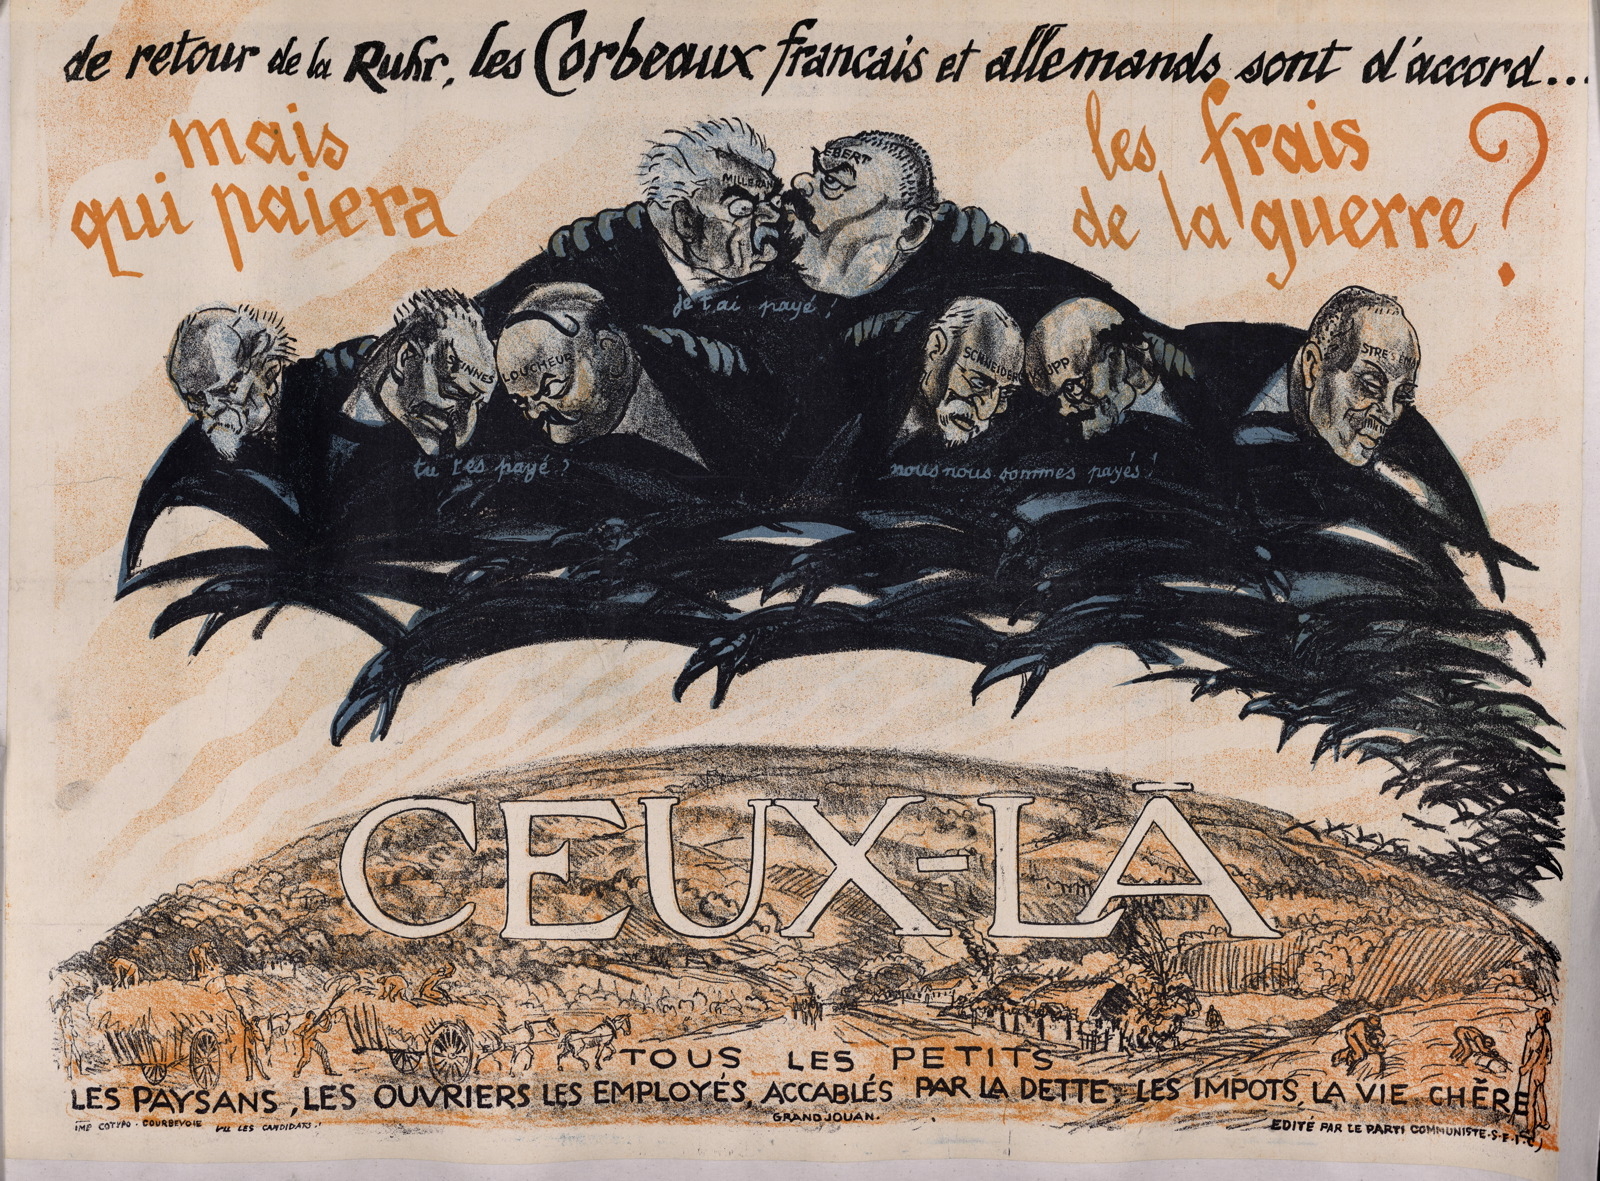 de retour de la Ruhr, les Corbeaux français et allemands sont d'accord...
mais
qui paiera
les frais
de la guerre ?
MILLERAN
EBERT
je t'ai payé !
INNES
LOUCHEUR
SCHNEIDER
UPP
STRESEMA
tu t'es payé ?
nous nous sommes payés !
CEUX-LÀ
TOUS LES PETITS
LES PAYSANS, LES OUVRIERS LES EMPLOYÉS, ACCABLÉS PAR LA DETTE, LES IMPOTS, LA VIE CHÈRE
GRANDJOUAN.
IMP COTYPO · COURBEVOIE VU LES CANDIDATS.!
EDITÉ PAR LE PARTI COMMUNISTE · S·F·I·C